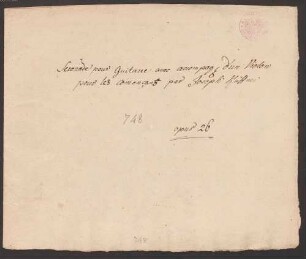 Serenade pour Guitarre avec accompag: d'un Violon
pour les comencans par Joseph
748
opus 26